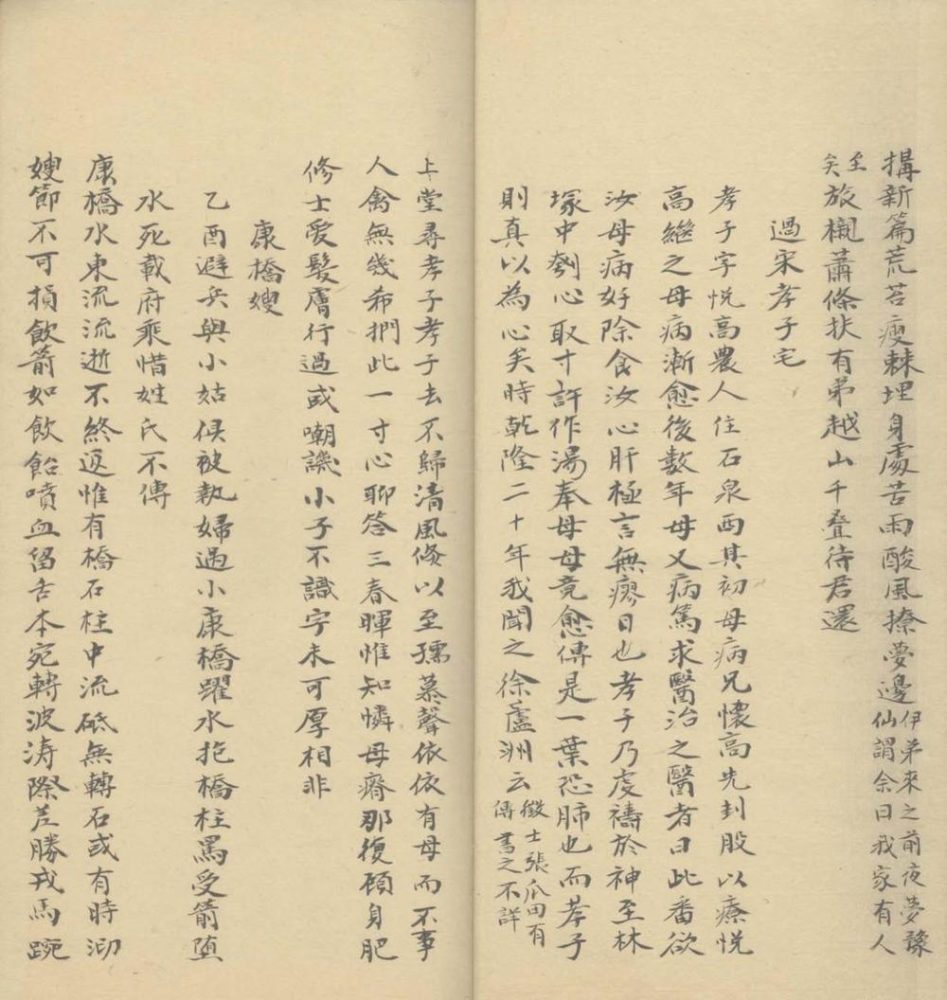 搆新篇荒苔瘦棘埋身處苦雨酸風撩夢邊伊弟來之前夜夢豫仙謂余曰我家有人
至矣旅櫬蕭條扶有弟越山千疊待君還
過宋孝子宅
孝子字悅高農人住石泉西其初母病兄懷高先刲股以療悅
高繼之母病漸愈後數年母又病篤求醫治之醫者曰此番欲
汝母病好除食汝心肝極言無瘳日也孝子乃虔禱於神至林
塚中刳心取寸許作湯奉母母竟愈傳是一葉恐肺也而孝子
則真以為心矣時乾隆二十年我聞之徐蘆洲云徵士張瓜田有傳書之不詳
上堂尋孝子孝子去不歸清風倏以至孺慕聲依依有母而不事
人禽無幾希捫此一寸心聊答三春暉惟知憐母瘠那復顧身肥
修士愛髮膚行過或嘲譏小子不識字未可厚相非
康橋嫂
乙酉避兵與小姑俱被執婦過小康橋躍水抱橋柱罵受箭墮
水死載府乘惜姓氏不傳
康橋水東流流逝不終返惟有橋石柱中流砥無轉石或有時泐
嫂節不可損飲箭如飲飴噴血留舌本宛轉波濤際差勝戎馬踠